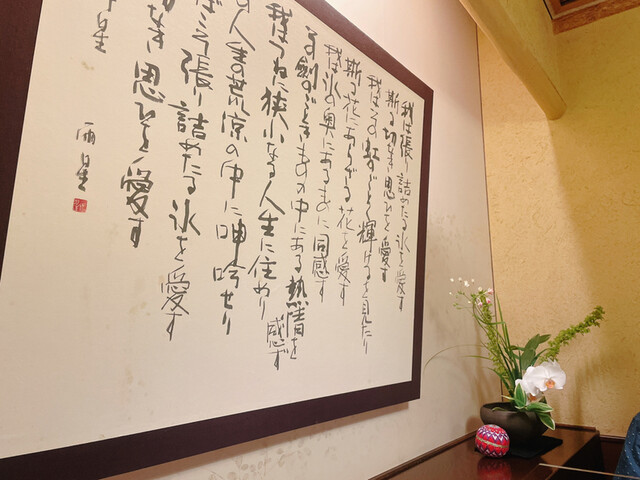 我は張り詰めたる氷を愛す
斯る切なき思ひを愛す
我はその虹のごとく輝けるを見たり
斯る花にあらざる花を愛す
我は氷の奥にあるものに同感す
その剣のごときものの中にある熱情を
感ず
我はつねに狭小なる人生に住めり
の人生の荒涼の中に呻吟せり
ばこそ張り詰めたる氷を愛す
なき思ひを愛す
星